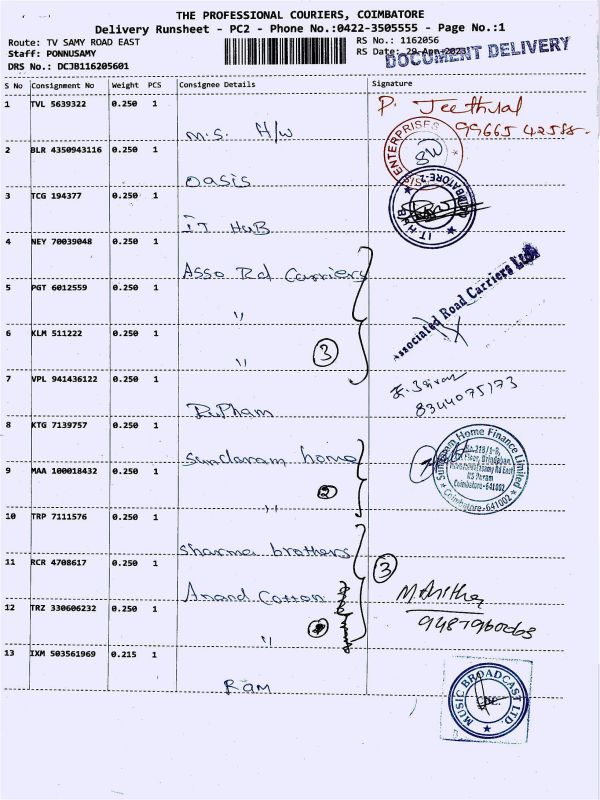 THE PROFESSIONAL COURIERS, COIMBATORE
Delivery Runsheet - PC2 - Phone No.:0422-3505555 - Page No.:1
Route: TV SAMY ROAD EAST
RS No.: 1162056
Staff: PONNUSAMY
RS Date: 29-Apr-2023
DOCUMENT DELIVERY
DRS No.: DCJB116205601
S No Consignment No Weight PCS Consignee Details Signature
1 TVL 5639322 0.250 1
M.S. H/W
P. Jeethulal
99665 42588
2 BLR 4350943116 0.250 1
Oasis
ENTERPRISES
3 TCG 194377 0.250 1
IT HUB
IT HUB
4 NEY 70039048 0.250 1
Asso Rd Carriers
5 PGT 6012559 0.250 1
"
Associated Road Carriers Ltd
6 KLM 511222 0.250 1
" 3
7 VPL 941436122 0.250 1
8344075173
8 KTG 7139757 0.250 1
Sundaram home
Sundaram Home Finance Limited
Coimbatore-641002
Coimbatore-641002
9 MAA 100018432 0.250 1
" 2
10 TRP 7111576 0.250 1
Sharma brothers
11 RCR 4708617 0.250 1
3
Anand Cotton
12 TRZ 330606232 0.250 1
"
13 IXM 503561969 0.215 1
Ram
MUSIC BROADCAST LTD.